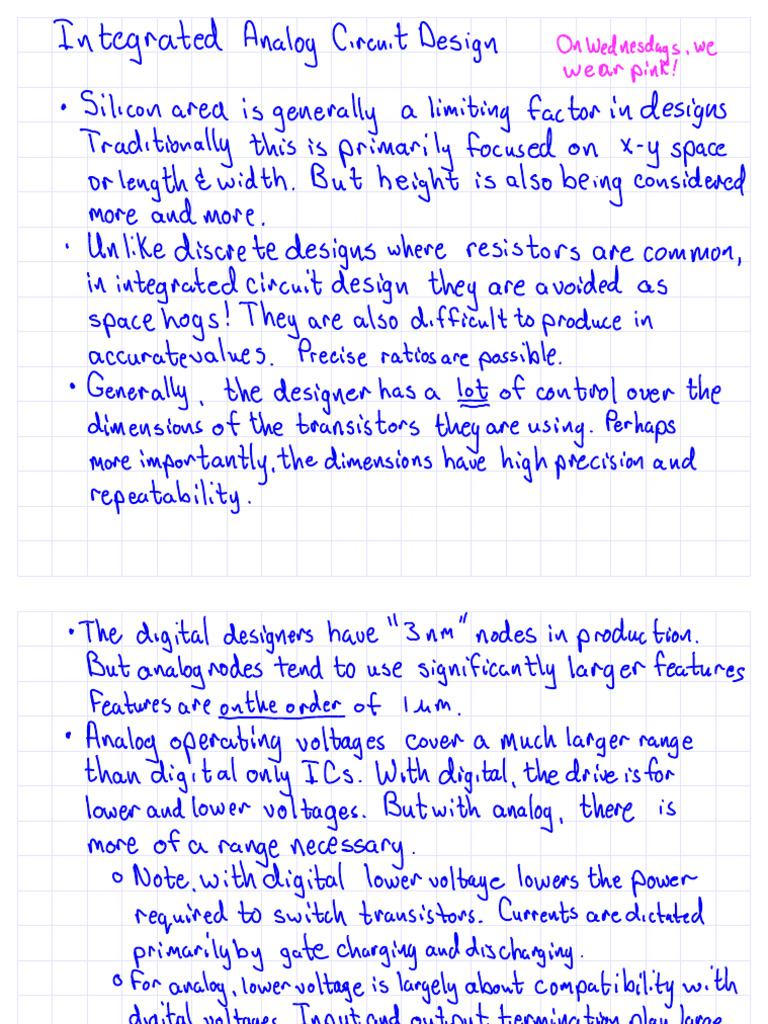 Integrated Analog Circuit Design
On Wednesdays, we
wear pink!
• Silicon area is generally a limiting factor in designs
Traditionally this is primarily focused on x-y space
or length & width. But height is also being considered
more and more.
• Unlike discrete designs where resistors are common,
in integrated circuit design they are avoided as
space hogs! They are also difficult to produce in
accurate values. Precise ratios are possible.
• Generally, the designer has a lot of control over the
dimensions of the transistors they are using. Perhaps
more importantly, the dimensions have high precision and
repeatability.
• The digital designers have "3nm" nodes in production.
But analog nodes tend to use significantly larger features
Features are on the order of 1um.
• Analog operating voltages cover a much larger range
than digital only ICs. With digital, the drive is for
lower and lower voltages. But with analog, there is
more of a range necessary.
o Note, with digital lower voltage lowers the power
required to switch transistors. Currents are dictated
primarily by gate charging and discharging.
o For analog, lower voltage is largely about compatibility with
digital voltages. Input and output termination play large